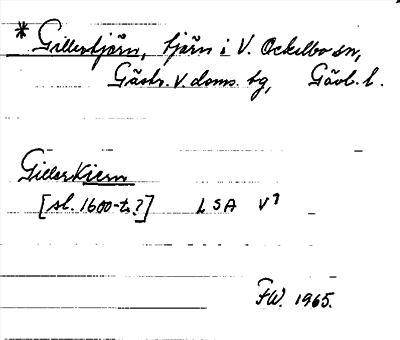 * Gillertjärn, tjärn i V. Ockelbo sn,
Gästr. V. doms. tg, Gävl. l.
Gillerkiern
[sl. 1600-t.?] LSA V7
FW. 1965.